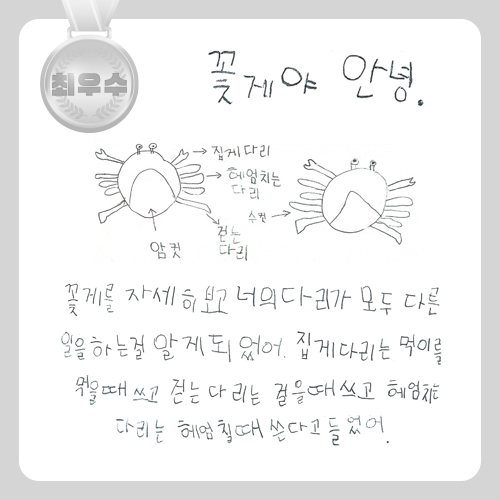 최우수
꽃게야 안녕.
집게다리
헤엄치는
다리
수컷
걷는
다리
암컷
꽃게를 자세히 보고 너의 다리가 모두 다른
일을 하는걸 알게 되었어. 집게다리는 먹이를
먹을때 쓰고 걷는 다리는 걸을때 쓰고 헤엄치는
다리는 헤엄칠때 쓴다고 들었어.